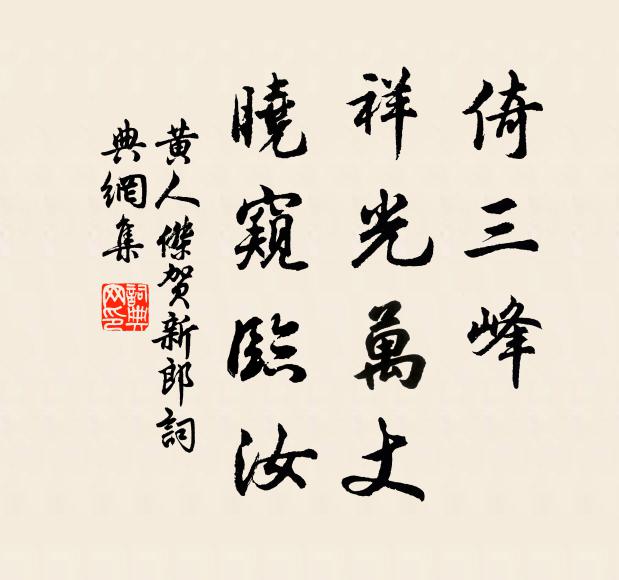 倚三峰
祥光萬丈
曉窺臨汝
黃人傑賀新郎詞
典網集
詞典網印